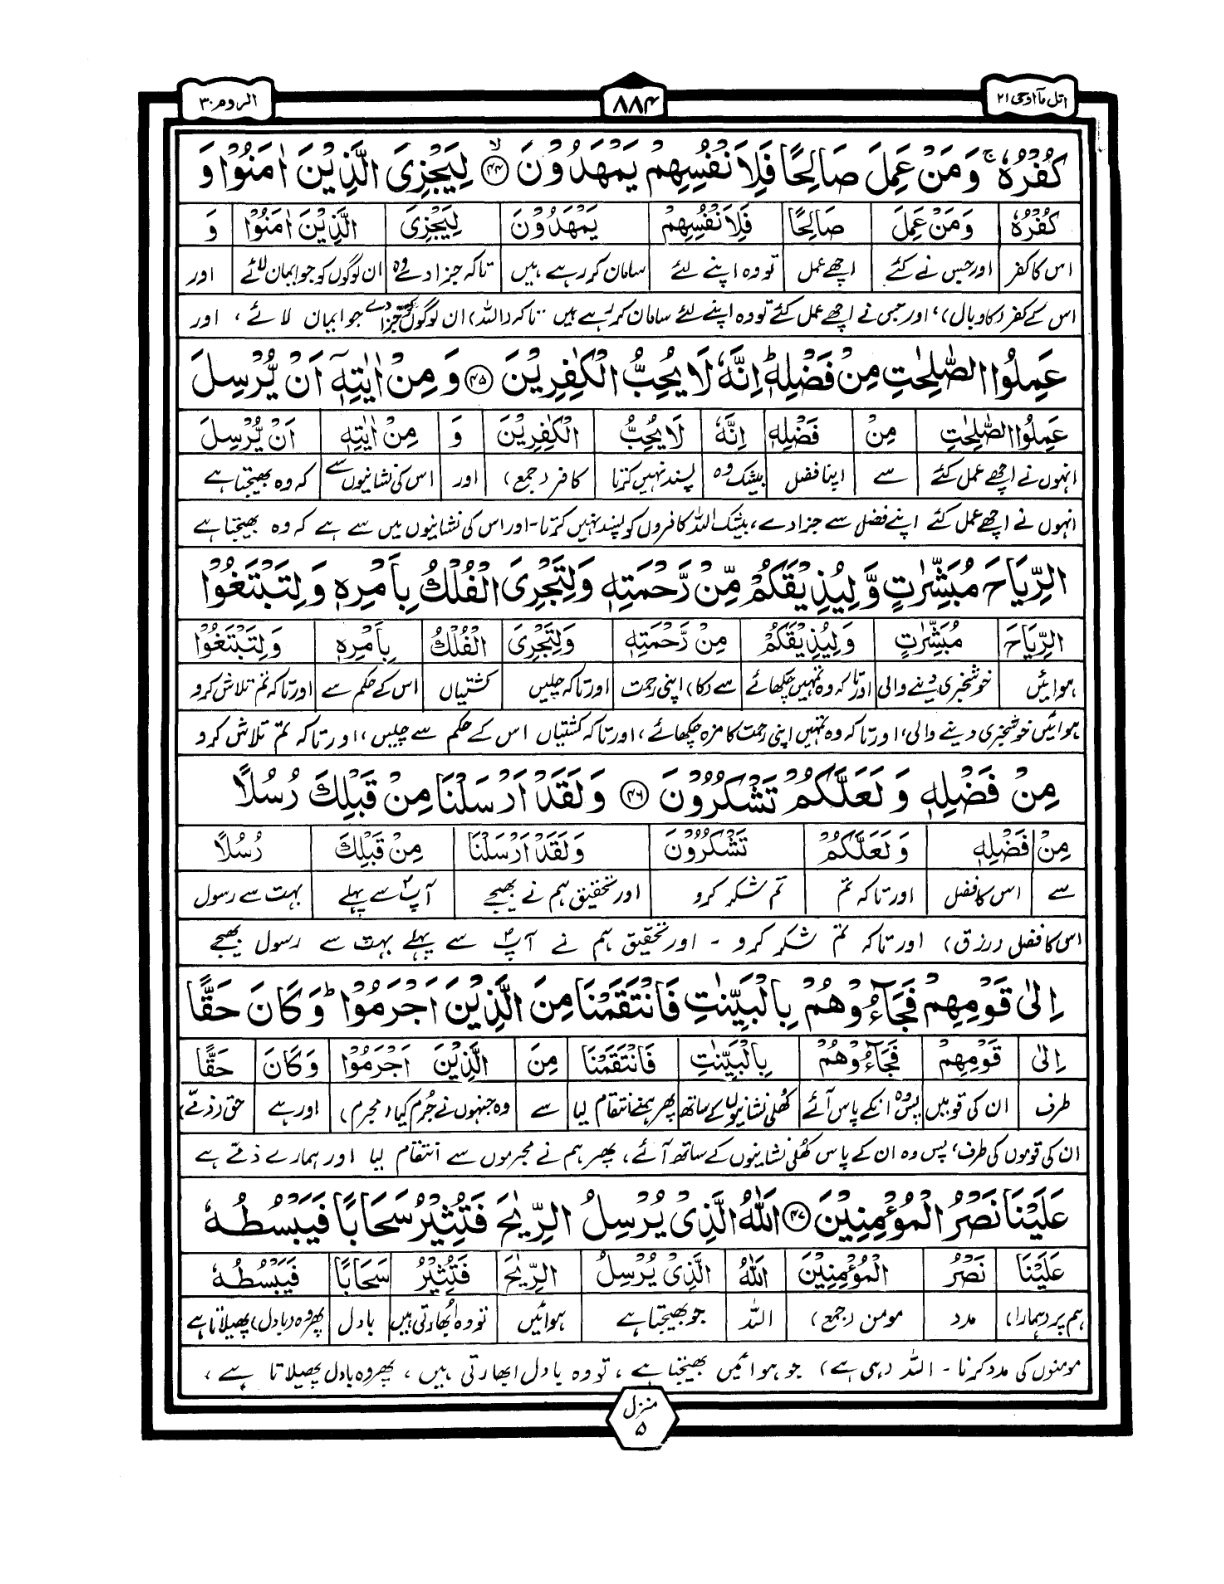 اتل مآ اوحی ۲۱
۸۸۴
الروم ۳۰
كُفْرُهٗ ۚ وَمَنْ عَمِلَ صَالِحًا فَلِاَنْفُسِهِمْ يَمْهَدُوْنَ ۙ۴۴ لِيَجْزِىَ الَّذِيْنَ اٰمَنُوْا وَ
كُفْرُهٗ وَمَنْ عَمِلَ صَالِحًا فَلِاَنْفُسِهِمْ يَمْهَدُوْنَ لِيَجْزِىَ الَّذِيْنَ اٰمَنُوْا وَ
اس کا کفر اور جس نے کئے اچھے عمل تو وہ اپنے لئے سامان کر رہے ہیں تاکہ جزا دے وہ ان لوگوں کو جو ایمان لائے اور
اس کے کفر (کا وبال)، اور جس نے اچھے عمل کئے تو وہ اپنے لئے سامان کر رہے ہیں تاکہ (اللہ) ان لوگوں کو جزا دے جو ایمان لائے، اور
عَمِلُوا الصّٰلِحٰتِ مِنْ فَضْلِهٖ ؕ اِنَّهٗ لَا يُحِبُّ الْكٰفِرِيْنَ ۴۵ وَ مِنْ اٰيٰتِهٖٓ اَنْ يُّرْسِلَ
عَمِلُوا الصّٰلِحٰتِ مِنْ فَضْلِهٖ اِنَّهٗ لَا يُحِبُّ الْكٰفِرِيْنَ وَ مِنْ اٰيٰتِهٖ اَنْ يُّرْسِلَ
انہوں نے اچھے عمل کئے سے اپنا فضل بیشک وہ پسند نہیں کرتا کافر (جمع) اور اس کی نشانیوں سے کہ وہ بھیجتا ہے
انہوں نے اچھے عمل کئے اپنے فضل سے جزا دے، بیشک اللہ کافروں کو پسند نہیں کرتا۔ اور اس کی نشانیوں میں سے ہے کہ وہ بھیجتا ہے
الرِّيَاحَ مُبَشِّرٰتٍ وَّ لِيُذِيْقَكُمْ مِّنْ رَّحْمَتِهٖ وَلِتَجْرِىَ الْفُلْكُ بِاَمْرِهٖ وَلِتَبْتَغُوْا
الرِّيَاحَ مُبَشِّرٰتٍ وَ لِيُذِيْقَكُمْ مِنْ رَّحْمَتِهٖ وَلِتَجْرِىَ الْفُلْكُ بِاَمْرِهٖ وَلِتَبْتَغُوْا
ہوائیں خوشخبری دینے والی اور تاکہ وہ تمہیں چکھائے سے (کا) اپنی رحمت اور تاکہ چلیں کشتیاں اس کے حکم سے اور تاکہ تم تلاش کرو
ہوائیں خوشخبری دینے والی، اور تاکہ وہ تمہیں اپنی رحمت کا مزہ چکھائے، اور تاکہ کشتیاں اس کے حکم سے چلیں، اور تاکہ تم تلاش کرو
مِنْ فَضْلِهٖ وَ لَعَلَّكُمْ تَشْكُرُوْنَ ۴۶ وَلَقَدْ اَرْسَلْنَا مِنْ قَبْلِكَ رُسُلًا
مِنْ فَضْلِهٖ وَ لَعَلَّكُمْ تَشْكُرُوْنَ وَلَقَدْ اَرْسَلْنَا مِنْ قَبْلِكَ رُسُلًا
سے اس کا فضل اور تاکہ تم تم شکر کرو اور تحقیق ہم نے بھیجے آپؐ سے پہلے بہت سے رسول
اس کا فضل (رزق) اور تاکہ تم شکر کرو ۔ اور تحقیق ہم نے آپؐ سے پہلے بہت سے رسول بھیجے
اِلٰى قَوْمِهِمْ فَجَآءُوْهُمْ بِالْبَيِّنٰتِ فَانْتَقَمْنَا مِنَ الَّذِيْنَ اَجْرَمُوْا ؕ وَكَانَ حَقًّا
اِلٰى قَوْمِهِمْ فَجَآءُوْهُمْ بِالْبَيِّنٰتِ فَانْتَقَمْنَا مِنَ الَّذِيْنَ اَجْرَمُوْا وَكَانَ حَقًّا
طرف ان کی قومیں پس وہ انکے پاس آئے کھلی نشانیوں کے ساتھ پھر ہمنے انتقام لیا سے وہ جنہوں نے جرم کیا (مجرم) اور ہے حق (ذمے)
ان کی قوموں کی طرف، پس وہ ان کے پاس کھلی نشانیوں کے ساتھ آئے، پھر ہم نے مجرموں سے انتقام لیا اور ہمارے ذمے ہے
عَلَيْنَا نَصْرُ الْمُؤْمِنِيْنَ ۴۷ اَللّٰهُ الَّذِىْ يُرْسِلُ الرِّيٰحَ فَتُثِيْرُ سَحَابًا فَيَبْسُطُهٗ
عَلَيْنَا نَصْرُ الْمُؤْمِنِيْنَ اَللّٰهُ الَّذِىْ يُرْسِلُ الرِّيٰحَ فَتُثِيْرُ سَحَابًا فَيَبْسُطُهٗ
ہم پر (ہمارا) مدد مومن (جمع) اللہ جو بھیجتا ہے ہوائیں تو وہ ابھارتی ہیں بادل پھر وہ (بادل) پھیلاتا ہے
مومنوں کی مدد کرنا ۔ اللہ (ہی ہے) جو ہوائیں بھیجتا ہے، تو وہ بادل ابھارتی ہیں، پھر وہ بادل پھیلاتا ہے،
منزل ۵